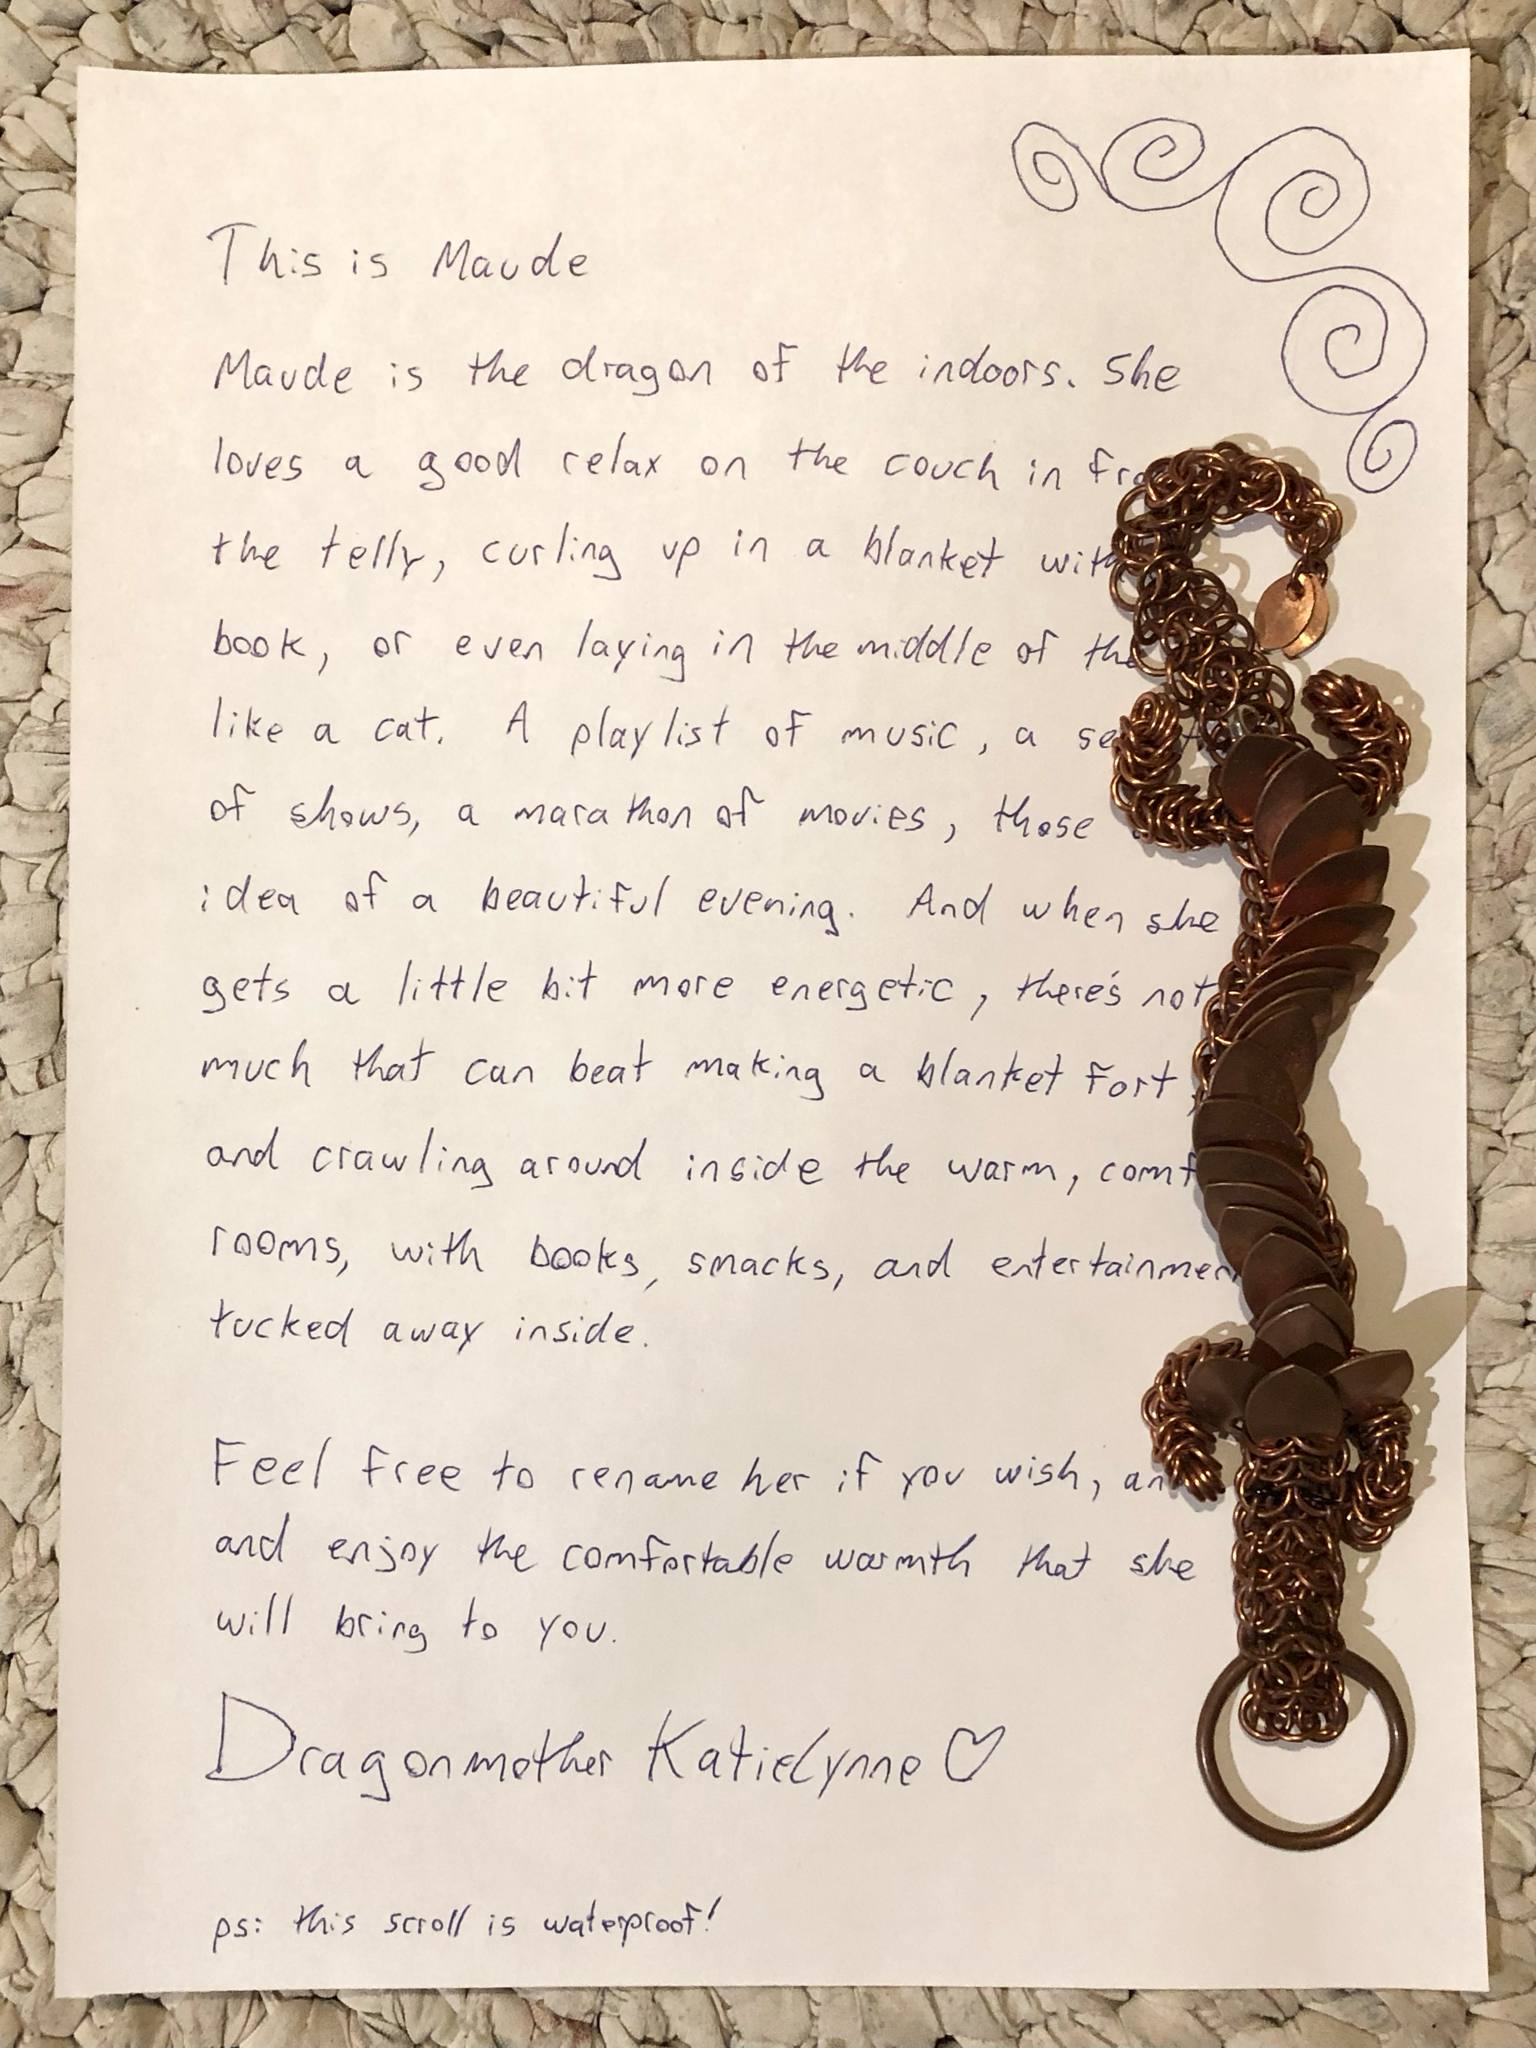 This is Maude
Maude is the dragon of the indoors. She
loves a good relax on the couch in
the telly, curling up in a blanket with
book, or even laying in the middle of the
like a cat. A playlist of music, a
of shows, a marathon of movies, those
idea of a beautiful evening. And when she
gets a little bit more energetic, there's not
much that can beat making a blanket fort,
and crawling around inside the warm,
rooms, with books, snacks, and
tucked away inside.
Feel free to rename her if you wish,
and enjoy the comfortable warmth that she
will bring to you.
Dragonmother KatieLynne ♡
ps: this scroll is waterproof!